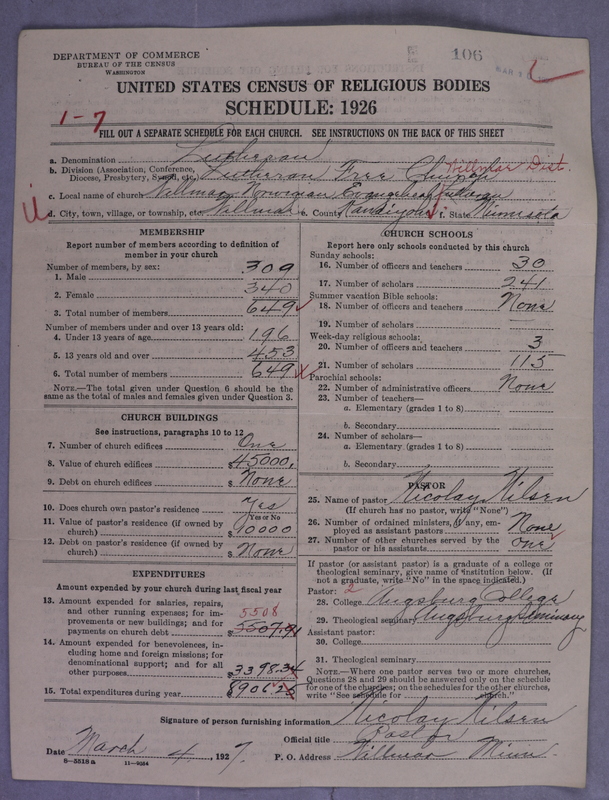 DEPARTMENT OF COMMERCE
BUREAU OF THE CENSUS
WASHINGTON
106
MAR
UNITED STATES CENSUS OF RELIGIOUS BODIES
SCHEDULE: 1926
1-7
FILL OUT A SEPARATE SCHEDULE FOR EACH CHURCH. SEE INSTRUCTIONS ON THE BACK OF THIS SHEET
a. Denomination Lutheran
b. Division (Association, Conference, Diocese, Presbytery, Synod, etc.) Lutheran Free Church Willmar Dist.
c. Local name of church Willmar Norwegian Evangelical Lutheran
d. City, town, village, or township, etc. Willmar e. County Kandiyohi f. State Minnesota
MEMBERSHIP
Report number of members according to definition of
member in your church
Number of members, by sex:
1. Male 309
2. Female 340
3. Total number of members 649
Number of members under and over 13 years old:
4. Under 13 years of age 196
5. 13 years old and over 453
6. Total number of members 649
NOTE.—The total given under Question 6 should be
same as the total of males and females given under Question 3.
CHURCH BUILDINGS
See instructions, paragraphs 10 to 12
7. Number of church edifices One
8. Value of church edifices $ 45000.
9. Debt on church edifices $ None
10. Does church own pastor's residence Yes
Yes or No
11. Value of pastor's residence (if owned by
church) $ 10000
12. Debt on pastor's residence (if owned by
church) $ None
EXPENDITURES
Amount expended by your church during last fiscal year
13. Amount expended for salaries, repairs,
and other running expenses; for im-
provements or new buildings; and for
payments on church debt $ 5507.91 5508
14. Amount expended for benevolences, in-
cluding home and foreign missions; for
denominational support; and for all
other purposes $ 3398.34
15. Total expenditures during year 8906.25
CHURCH SCHOOLS
Report here only schools conducted by this church
Sunday schools:
16. Number of officers and teachers 30
17. Number of scholars 241
Summer vacation Bible schools:
18. Number of officers and teachers None
19. Number of scholars
Week-day religious schools:
20. Number of officers and teachers 3
21. Number of scholars 115
Parochial schools:
22. Number of administrative officers None
23. Number of teachers—
a. Elementary (grades 1 to 8)
b. Secondary
24. Number of scholars—
a. Elementary (grades 1 to 8)
b. Secondary
PASTOR
25. Name of pastor Nicolay Nilsen
(If church has no pastor, write "None")
26. Number of ordained ministers, if any, em-
ployed as assistant pastors None
27. Number of other churches served by the
pastor or his assistants One
If pastor (or assistant pastor) is a graduate of a college or
theological seminary, give name of institution below. (If
not a graduate, write "No" in the space indicated.)
Pastor: 2
28. College Augsburg College
29. Theological seminary Augsburg Seminary
Assistant pastor:
30. College
31. Theological seminary
NOTE.—Where one pastor serves two or more churches,
Questions 28 and 29 should be answered only on the schedule
for one of the churches; on the schedules for the other churches,
write "See schedule for church."
Signature of person furnishing information Nicolay Nilsen
Official title Pastor
Date March 4, 1927. P. O. Address Willmar Minn.
8—5518 a 11—9054